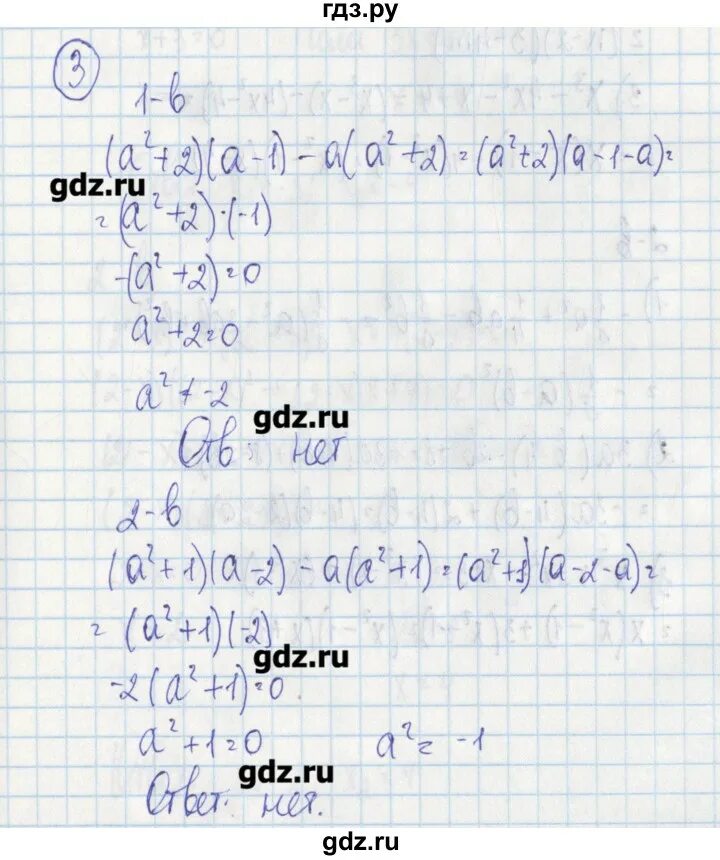 гдз.ру
3
1-в
(a²+2)(a-1)-a(a²+2)=(a²+2)(a-1-a)=
gdz.ru
=(a²+2)·(-1)
-(a²+2)=0
a²+2=0
a²≠-2
gdz.ru
Отв: нет
2-в
(a²+1)(a-2)-a(a²+1)=(a²+1)(a-2-a)=
=(a²+1)(-2)
gdz.ru
-2(a²+1)=0
a²+1=0 a²=-1
gdz.ru
Ответ: нет.
gdz.ru